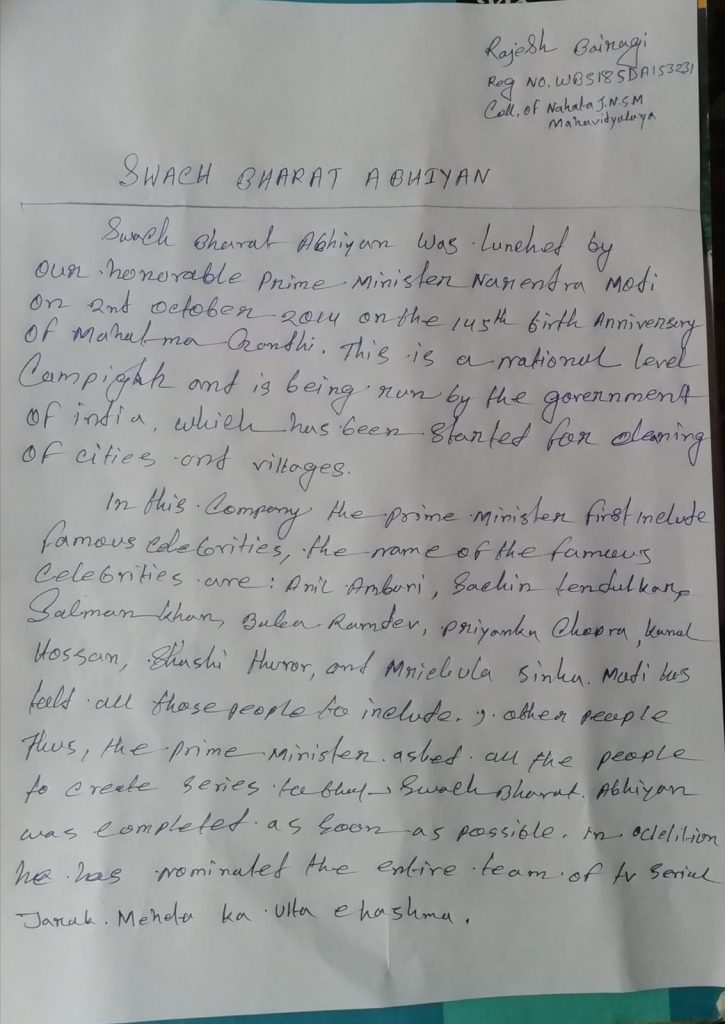 Rajesh Bairagi
Reg No. WBS18SDA153231
Coll, of Nahata J.N.S.M
Mahavidyalaya
SWACH BHARAT ABHIYAN
Swach Bharat Abhiyan was lunched by
our honorable Prime Minister Narendra Modi
on 2nd October 2014 on the 145th birth Anniversary
of Mahatma Gandhi. This is a national level
Campighh and is being run by the government
of india, which has been started for cleaning
of cities and villages.
In this Company the prime Minister first include
famous celebrities, the name of the famous
celebrities are: Anil Ambani, Sachin tendulkar,
Salman Khan, Baba Ramdev, Priyanka Chopra, Kamal
Hossan, Shashi Thuror, and Mriehula Sinha. Modi has
told all those people to include 9 other people
Thus, the prime Minister asked all the people
to create series so that Swach Bharat Abhiyan
was completed as soon as possible. in addition
he has nominated the entire team of tv serial
Tarak Mehda ka Ulta chashma.